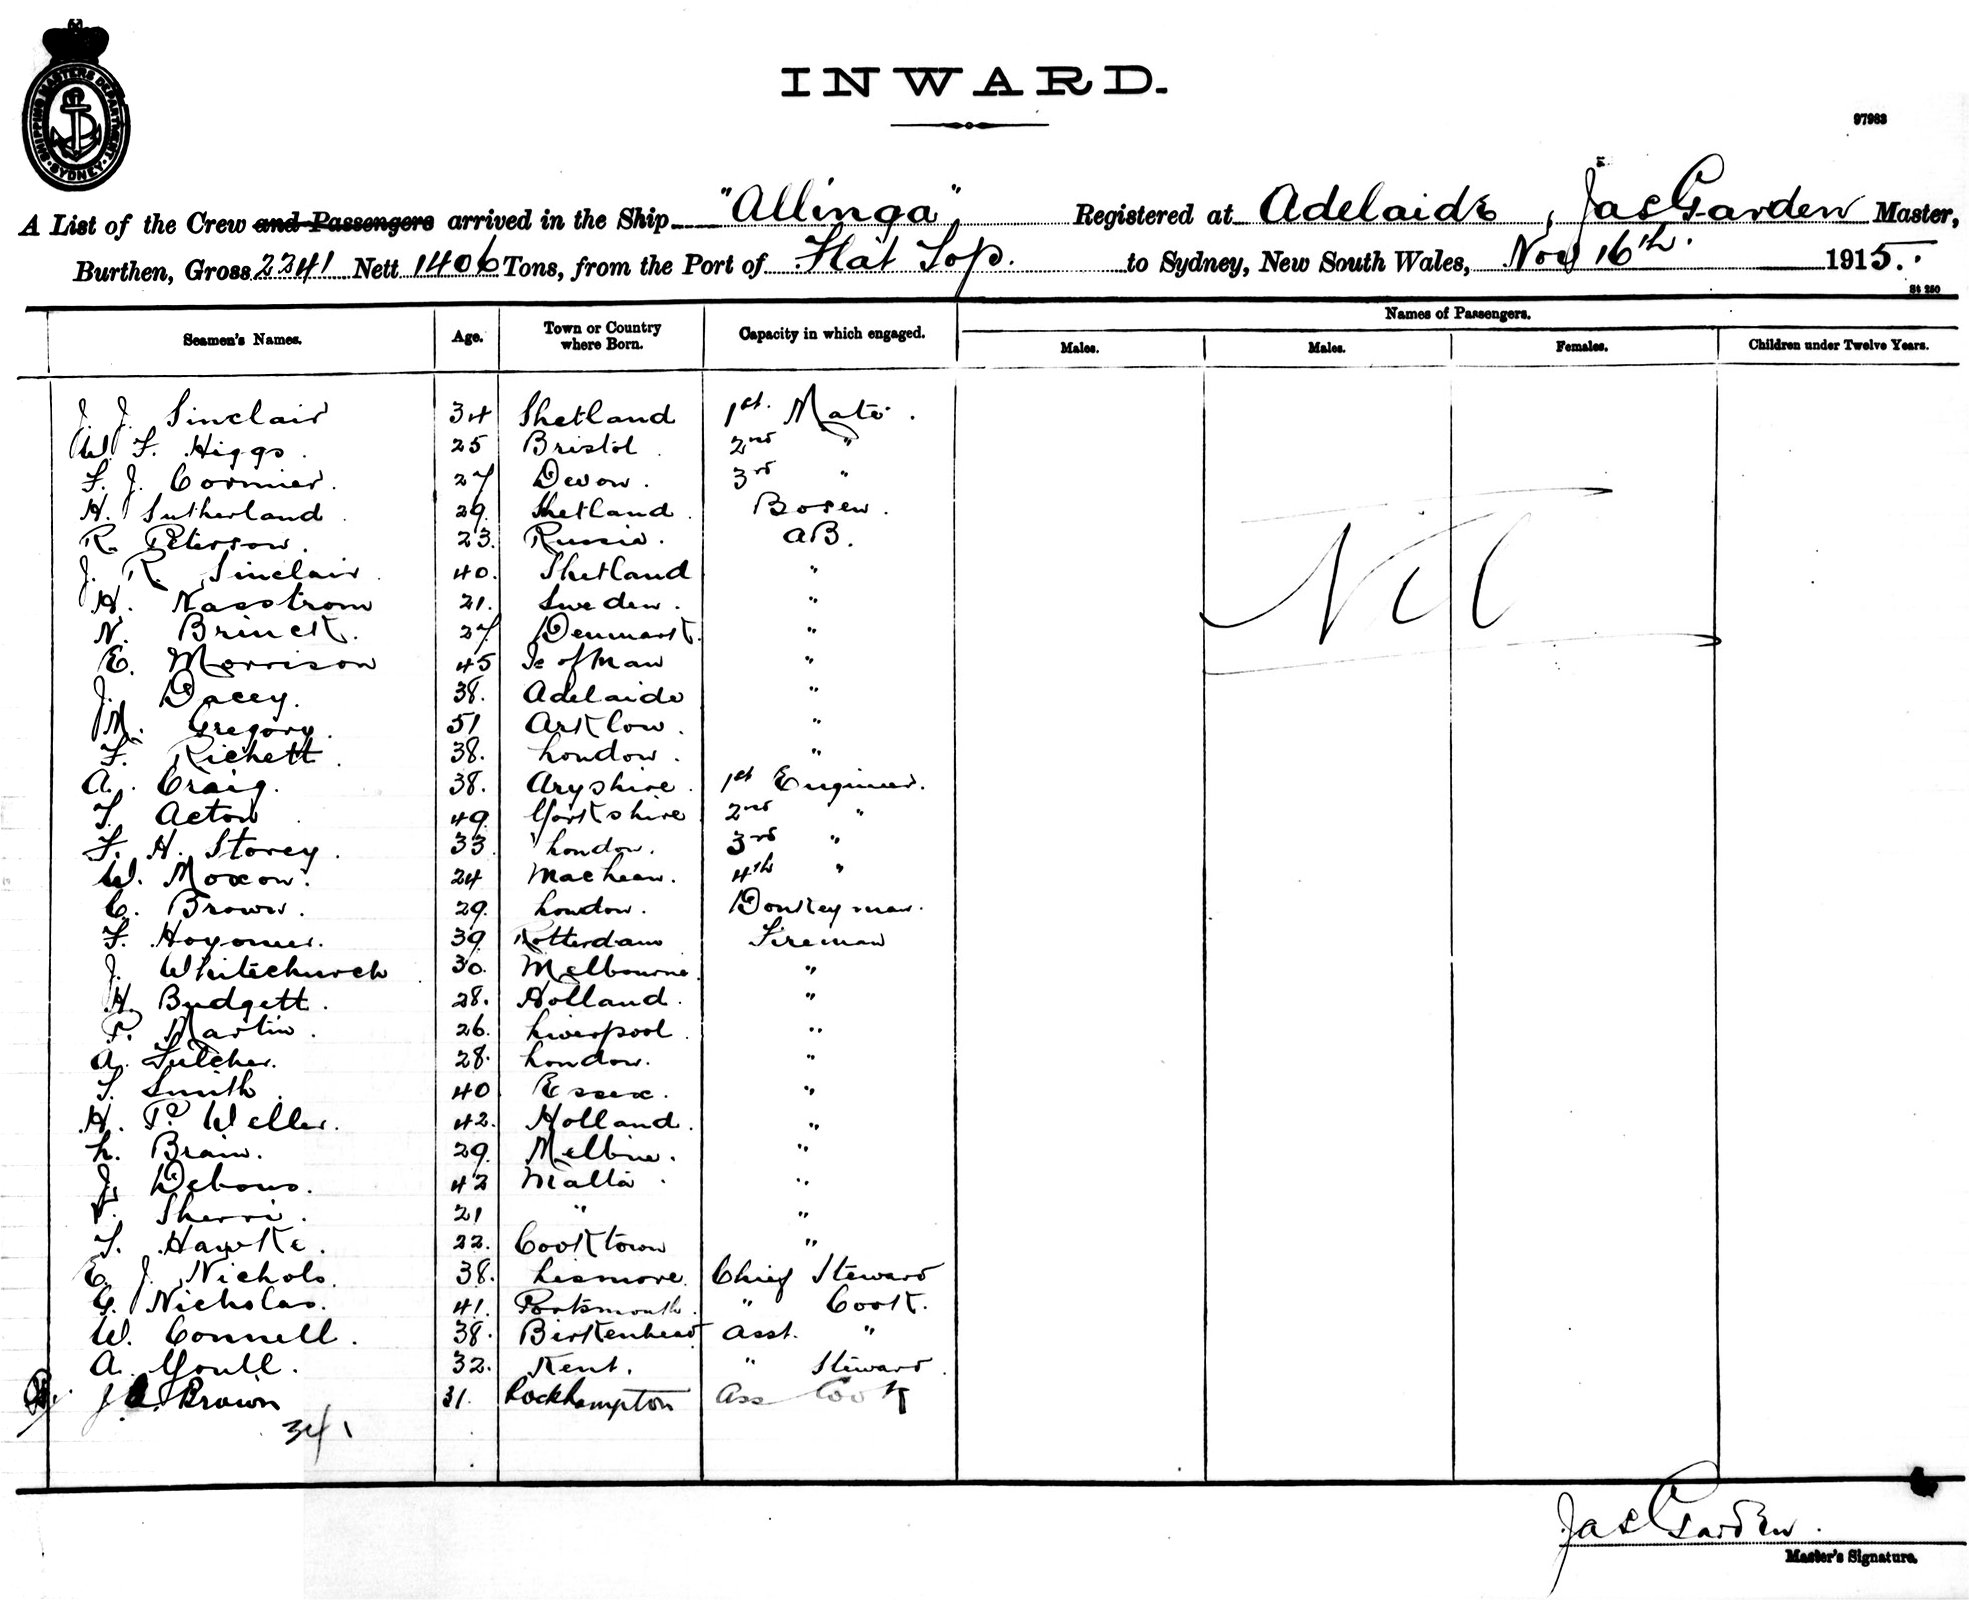 SHIPPING MASTERS DEPARTMENT · SYDNEY ·
INWARD.
97983
A List of the Crew and Passengers arrived in the Ship "Allinga", Registered at Adelaide, Jas Garden Master,
Burthen, Gross 2241 Nett 1406 Tons, from the Port of Flat Top. to Sydney, New South Wales, Nov 16th. 1915.
St 250
Seamen's Names. Age. Town or Country where Born. Capacity in which engaged. Names of Passengers.
Males. Males. Females. Children under Twelve Years.
J. J. Sinclair 34 Shetland 1st. Mate.
W. F. Higgs. 25 Bristol. 2nd "
F. J. Cormier. 27 Devon. 3rd "
H. Sutherland. 29. Shetland. Bosen.
R. Peterson. 23. Russia. AB.
J. R. Sinclair. 40. Shetland "
H. Nasstrom 21. Sweden. "
N. Brinck. 27 Denmark. "
E. Morrison 45 Is of Man "
J. Dacey. 38. Adelaide "
M. Gregory. 51 Arklow. "
F. Richett. 38. London. "
A. Craig. 38. Aryshire. 1st Engineer.
T. Acton 49 Yorkshire 2nd "
F. H. Storey. 33 London. 3rd "
W. Moxon. 24 Machean. 4th "
C. Brown. 29. London. Donkeyman.
F. 39 Rotterdam Fireman
J. Whitechurch 30. Melbourne. "
H. Budgett. 28. Holland. "
P. Martin. 26. Liverpool. "
A. Fulcher. 28. London. "
T. Smith. 40 Essex. "
H. P. Weller. 42. Holland. "
L. Brain. 29. Melbne. "
J. Debono. 42 Malta. "
Sherri. 21 " "
T. Hawke. 22. Cooktown "
E. J. Nichols. 38. Lismore. Chief Steward
G. Nicholas. 41. Portsmouth. " Cook.
W. Connell. 38. Birkenhead Asst. "
A. Youll. 32. Kent. " Steward.
J. Brown 31. Rockhampton Ass Cook
34
Nil
Jas Garden.
Master's Signature.